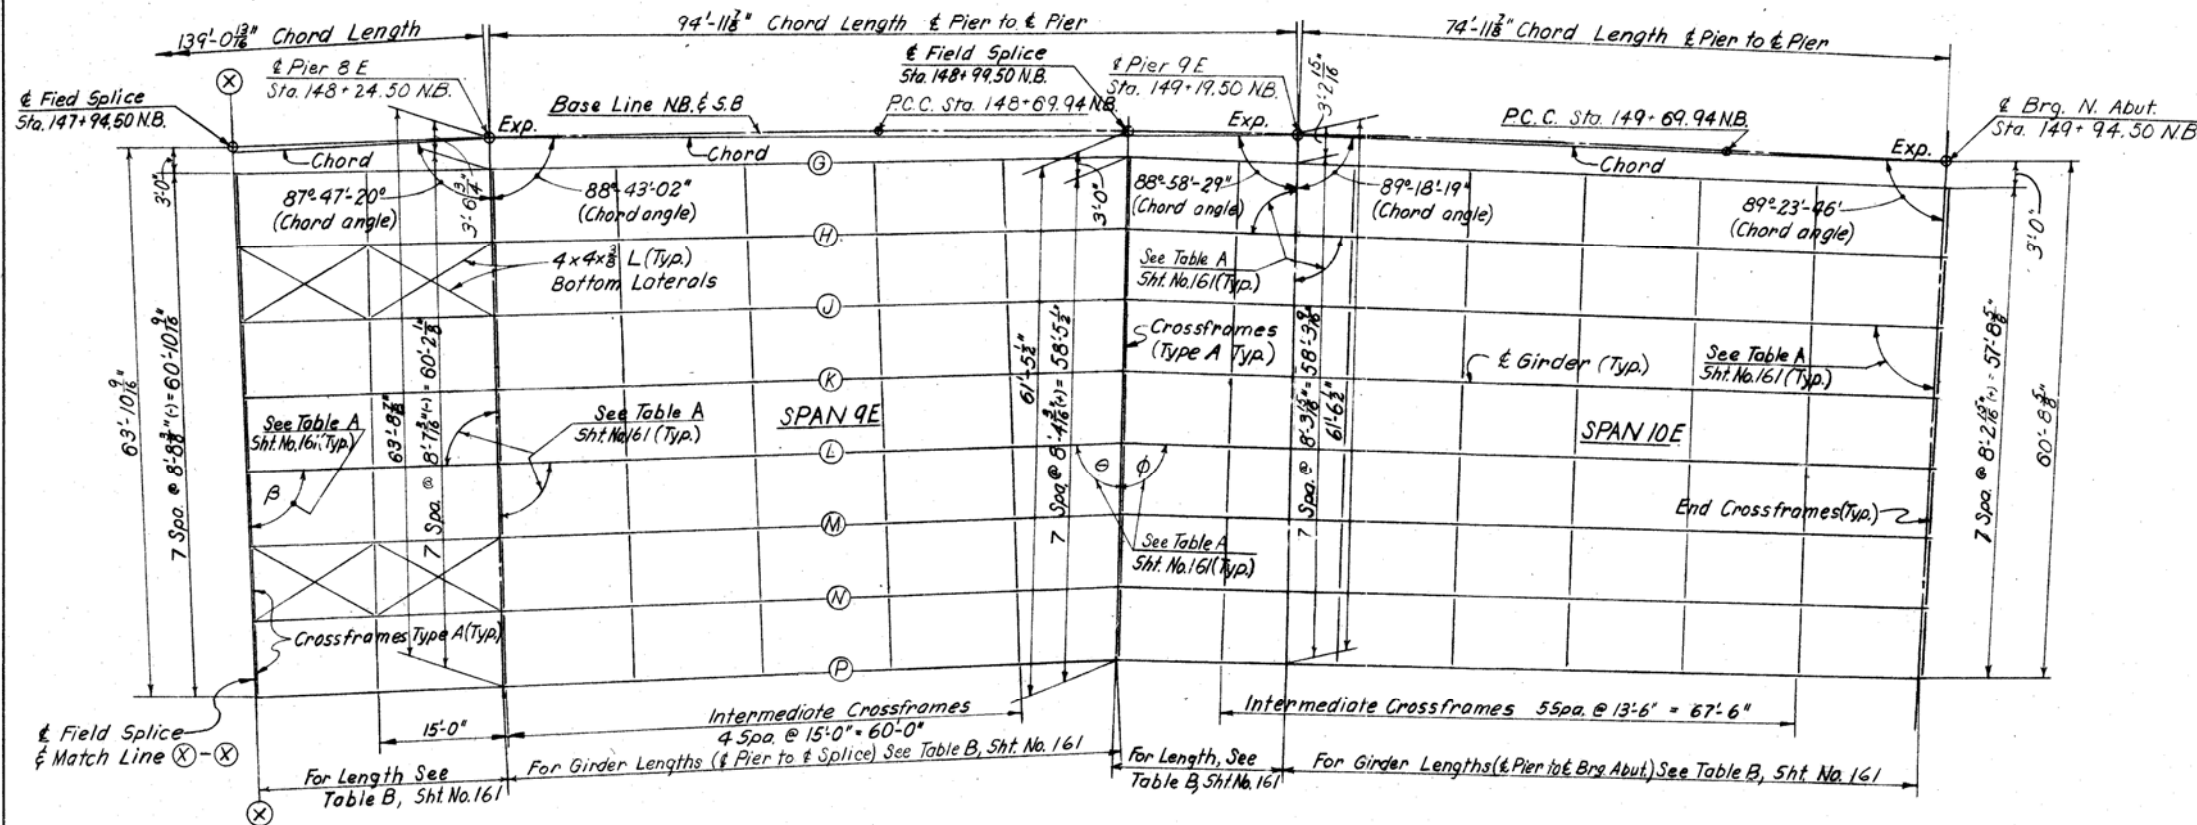 139'-0 13/16" Chord Length
94'-11 7/8" Chord Length ℄ Pier to ℄ Pier
74'-11 7/8" Chord Length ℄ Pier to ℄ Pier
X
℄ Fied Splice
Sta. 147+94.50 N.B.
℄ Pier 8 E
Sta. 148+24.50 N.B.
Base Line N.B. & S.B
℄ Field Splice
Sta. 148+99.50 N.B.
P.C.C. Sta. 148+69.94 N.B.
℄ Pier 9 E
Sta. 149+19.50 N.B.
3'-2 15/16"
P.C.C. Sta. 149+69.94 N.B.
℄ Brg. N. Abut.
Sta. 149+94.50 N.B
Exp.
Exp.
Exp.
Chord
Chord
Chord
G
3'-0"
87°-47'-20"
(Chord angle)
3'-6 3/4"
88°-43'-02"
(Chord angle)
3'-0"
88°-58'-29"
(Chord angle)
89°-18'-19"
(Chord angle)
89°-23'-46'
(Chord angle)
3'-0"
H
4x4x3/8 L (Typ.)
Bottom Laterals
See Table A
Sht. No. 161 (Typ.)
J
Crossframes
(Type A Typ.)
℄ Girder (Typ.)
See Table A
Sht. No. 161 (Typ.)
K
63'-10 9/16"
7 Spa. @ 8'-8 3/8"(-) = 60'-10 9/16"
63'-8 7/8"
7 Spa. @ 8'-7 3/16"(-) = 60'-2 1/8"
61'-5 1/2"
7 Spa. @ 8'-4 3/16"(+) = 58'-5 1/2"
7 Spa. @ 8'-3 15/16" = 58'-3 9/16"
61'-6 1/2"
7 Spa. @ 8'-2 15/16"(+) = 57'-8 5/8"
60'-8 5/8"
See Table A
Sht. No. 161 (Typ.)
See Table A
Sht. No. 161 (Typ.)
SPAN 9E
SPAN 10E
L
β
θ
φ
M
See Table A
Sht. No. 161 (Typ.)
End Crossframes (Typ.)
N
Crossframes Type A (Typ.)
P
℄ Field Splice
& Match Line X-X
15'-0"
Intermediate Crossframes
4 Spa. @ 15'-0" = 60'-0"
Intermediate Crossframes 5Spa. @ 13'-6" = 67'-6"
For Length See
Table B, Sht. No. 161
For Girder Lengths (℄ Pier to ℄ Splice) See Table B, Sht. No. 161
For Length, See
Table B, Sht. No. 161
For Girder Lengths (℄ Pier to ℄ Brg. Abut.) See Table B, Sht. No. 161
X